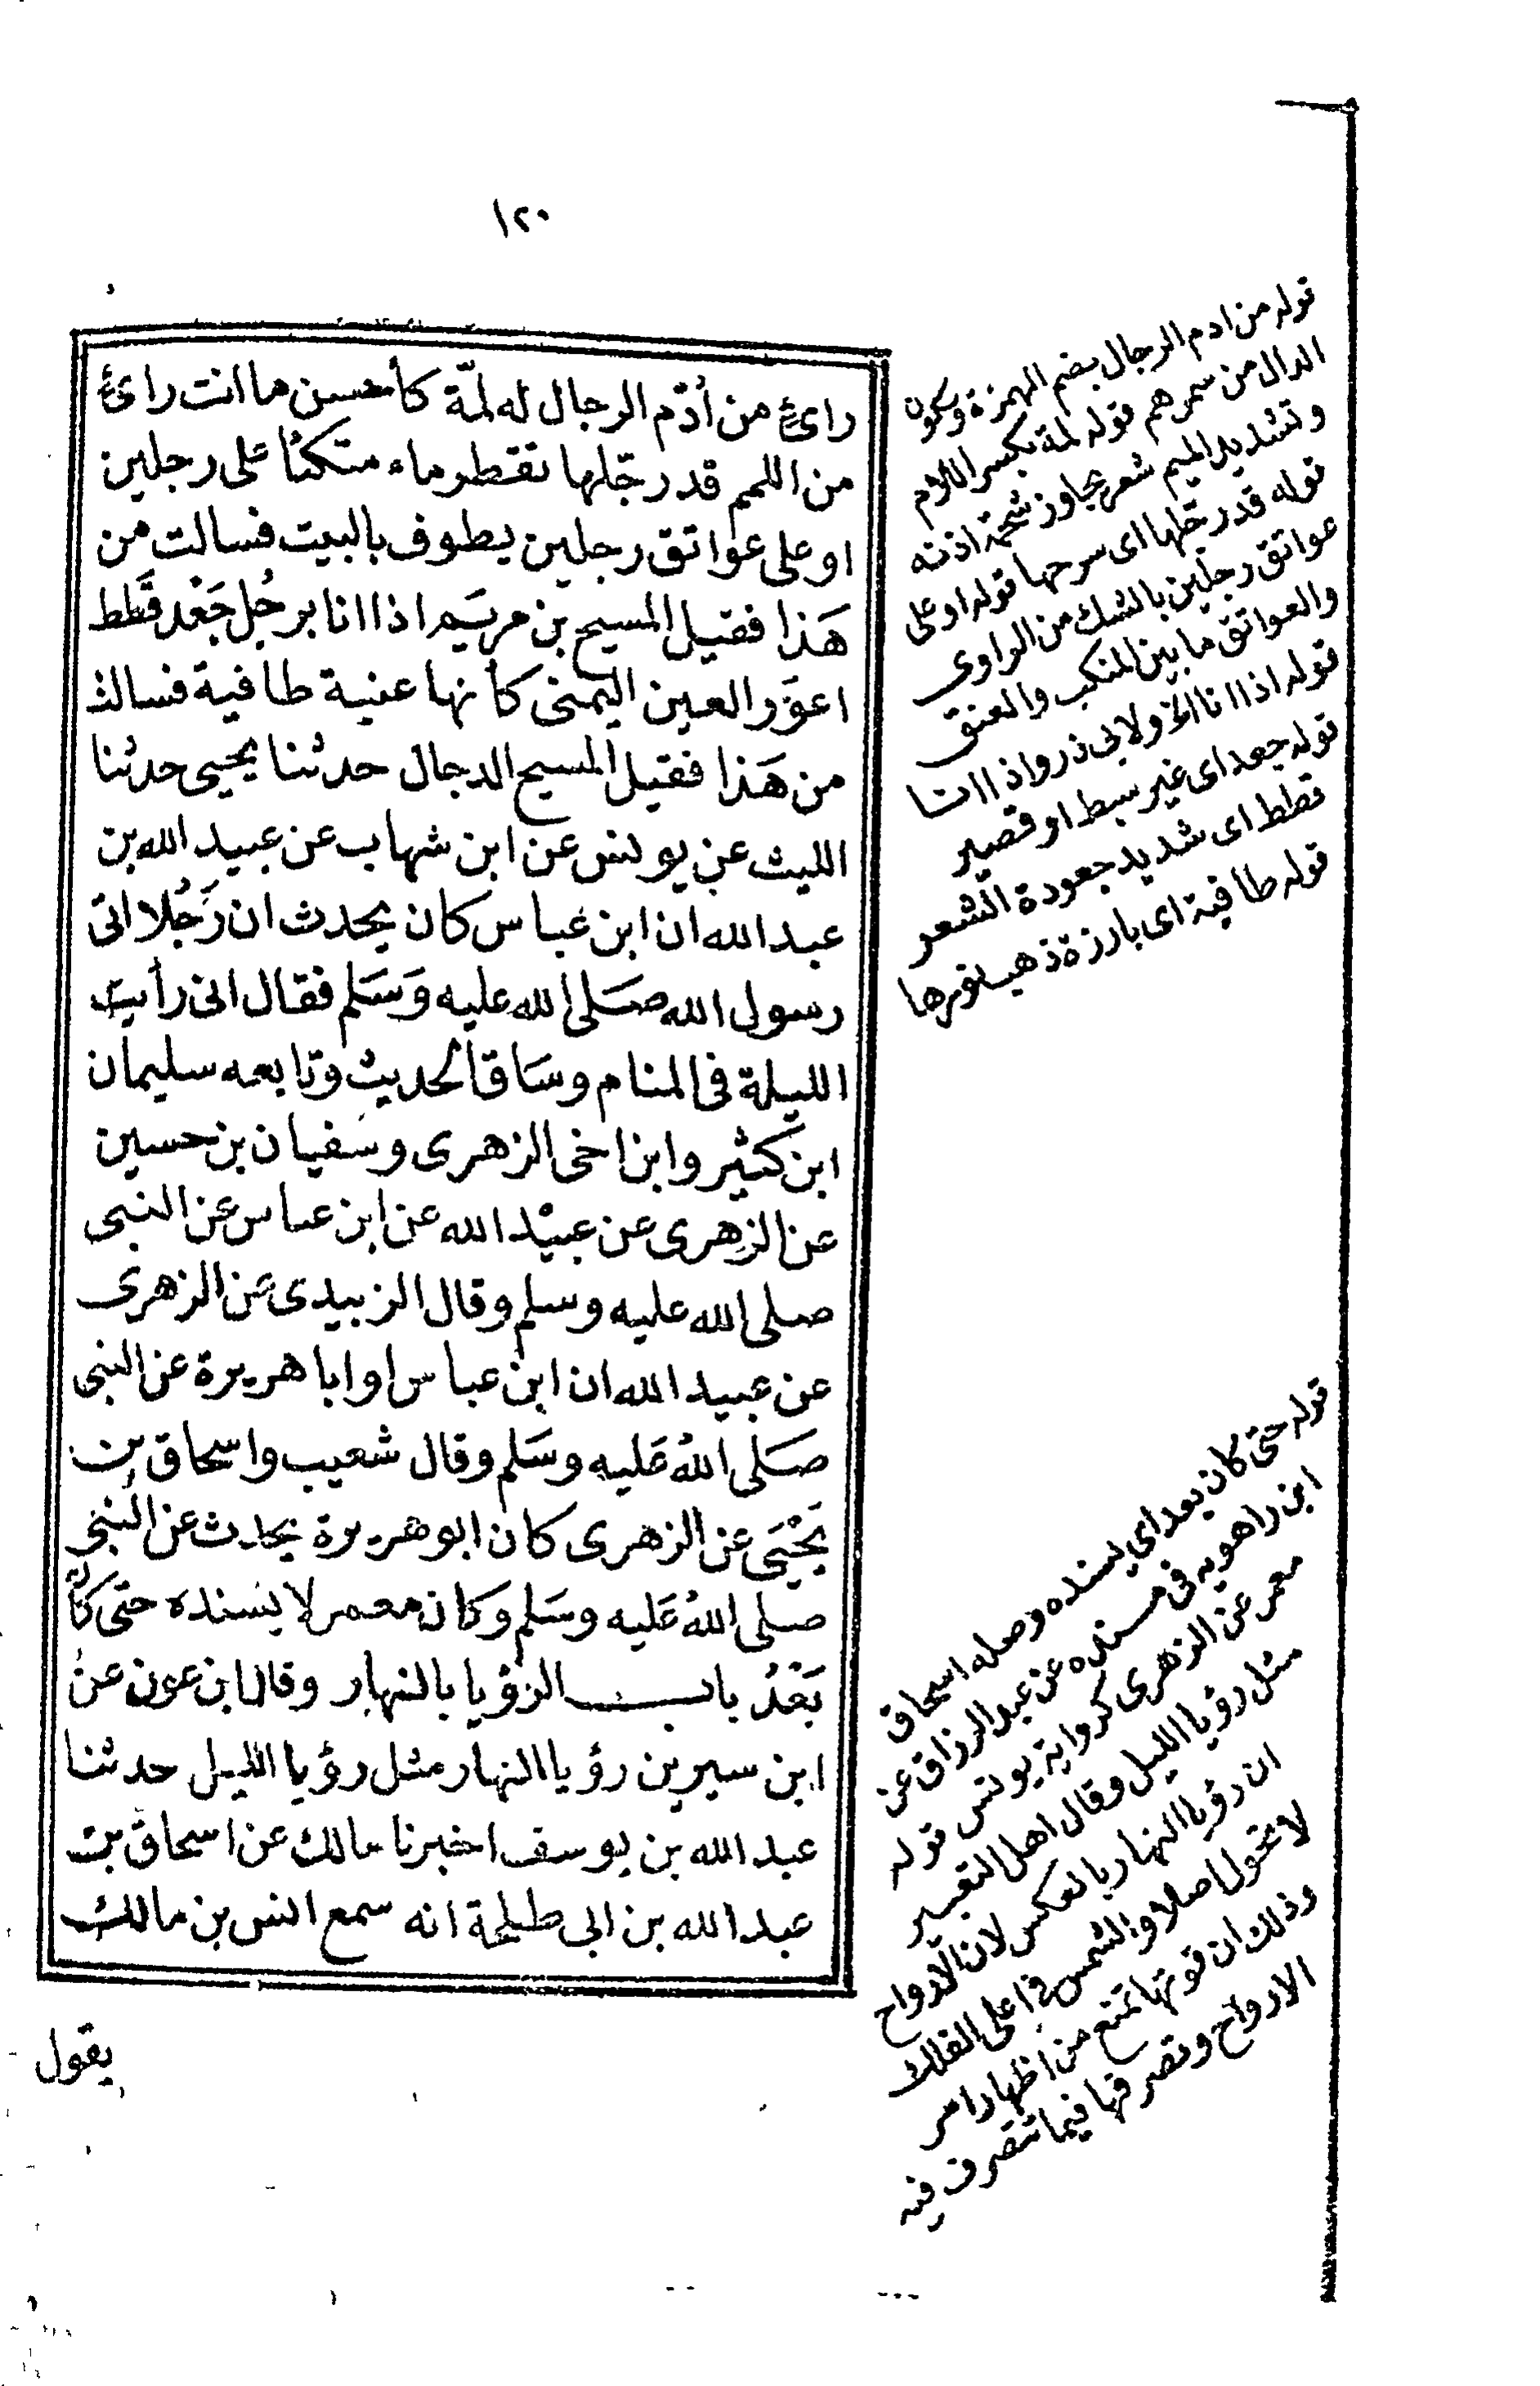 ١٢٠
رائ من أُدْم الرجال له لمّة كأحسن ما انت رائ
من اللمم قد رجّلها تقطر ماء متكئا على رجلين
او على عواتق رجلين يطوف بالبيت فسالت من
هَذا فقيل المسيح بن مريَم اذا انا برجُل جَعْد قَطط
اعوَر العين اليمنى كأنها عنبة طافية فسالت
من هَذا فقيل المسيح الدجال حدثنا يحيى حدثنا
الليث عن يونس عن ابن شهاب عن عبيد الله بن
عبد الله ان ابن عَباس كان يحدث ان رَجُلا اتى
رسول الله صَلى الله عليه وَسَلم فقال انى رأيت
الليلة فى المنام وسَاق الحديث وتابعه سليمان
ابن كثير وابن اخى الزهرى وسَفيان بن حسين
عن الزهرى عن عبيْد الله عن ابن عباس عن النبى
صلى الله عليه وسلم وقال الزبيدى عن الزهرى
عن عبيد الله ان ابن عباس او ابا هريرة عن النبى
صَلى اللهُ عَليه وسَلم وقال شعيب واسحاق بن
يَحْيَى عن الزهرى كان ابو هريرة يحدث عن النبى
صلى اللهُ عَليه وسَلم وكان معمر لا يسنده حتى كان
بَعْدُ باب الرؤيا بالنهار وقال ابن عون عن
ابن سيرين رؤيا النهار مثل رؤيا الليل حدثنا
عبد الله بن يوسف اخبرنا مالك عن اسحاق بن
عبد الله بن ابى طلحة انه سمع انس بن مالك
يقول
قوله من ادم الرجال بضم الهمزة وسكون
الدال من سمرهم قوله لمة بكسر اللام
وتشديد الميم شعر يجاوز شحمة اذنه
قوله قد رجلها اى سرحها قوله او على
عواتق رجلين بالشك من الراوى
والعواتق ما بين المنكب والعنق
قوله اذا انا الخ ولابى ذر واذا انا
قوله جعد اى غير سبط او قصير
قطط اى شديد جعودة الشعر
قوله طافية اى بارزة ذهب نورها
قوله حتى كان بعد اي يسنده وصله اسحاق
ابن راهويه فى مسنده عن عبد الرزاق عن
معمر عن الزهرى كرواية يونس قوله
مثل رؤيا الليل وقال اهل التعبير
ان رؤيا النهار بالعكس لان الارواح
لا تتحول اصلا والشمس في اعلى الفلك
وذلك ان قوتها تمنع من اظهار امر
الارواح وتصرفها فيما تتصرف فيه